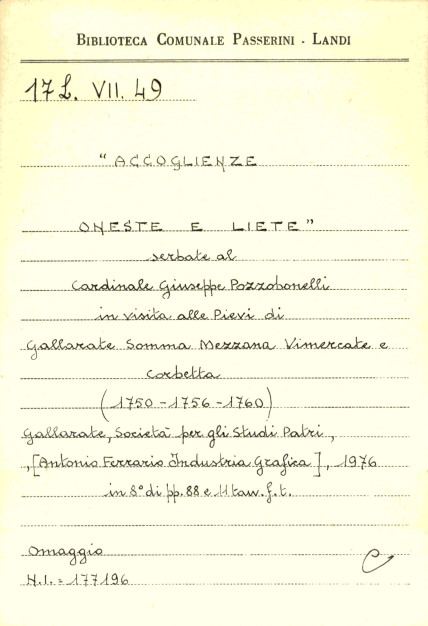 BIBLIOTECA COMUNALE PASSERINI - LANDI
17 L. VII. 49
"ACCOGLIENZE
ONESTE E LIETE"
serbate al
Cardinale Giuseppe Pozzobonelli
in visita alle Pievi di
Gallarate Somma Mezzana Vimercate e
Corbetta
(1750-1756-1760)
Gallarate, Società per gli Studi Patri,
,[Antonio Ferrario Industria Grafica], 1976
in 8° di pp. 88 e 11 tav. f. t.
Omaggio
N.I. = 177196